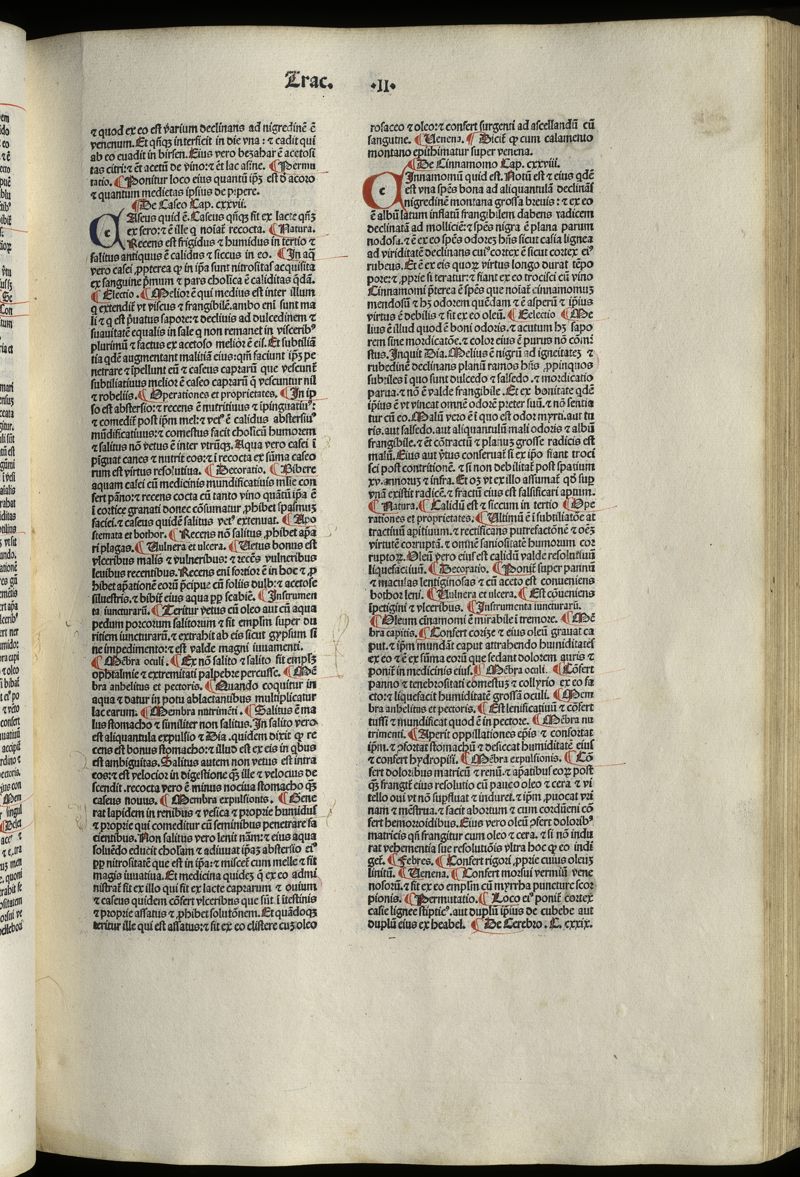 Trac. II
⁊ quod ex eo est varium declinans ad nigredinē ē
venenum. Et q̄nq̄ interficit in die vna : ⁊ cadit qui
ab eo euadit in hirsen. Eius vero bezahar ē acetosi
tas citri: ⁊ ēt acetū de vino: ⁊ ēt lac asine. ¶ Permu
tatio. ¶ Ponitur loco eius quantū ip̄ȝ est d̄ acoro
⁊ quantum medietas ipsius de pipere.
¶ De Caseo Cap. cxxvii.
CAseus quid ē. Caseus q̄nq̄ fit ex lacte qn̄qȝ
ex sero: ⁊ ē ille q̄ noīat̄ recocta. ¶ Natura.
Recens est frigidus ⁊ humidus in tertio ⁊
salitus antiquus ē calidus ⁊ siccus in eo. ¶ In aq̄
vero casei ꝓpterea ꝙ in ip̄a sunt nitrositas acquisita
ex sanguine pͥmum ⁊ pars cholica ē caliditas q̄dā.
¶ Electio. ¶ Melior ē qui medius est inter illum
q̄ extendit̄ vt viscus ⁊ frangibilē. ambo eni sunt ma
li ⁊ q̄ est pͥuatus sapore: ⁊ decliuis ad dulcedinem ⁊
suauitatē equalis in sale q̄ non remanet in viscerib⁹
plurimū ⁊ factus ex acetoso melior ē eis. Et subtiliā
tia q̄dē augmentant malitiā eius: qm̄ faciunt ip̄ȝ pe
netrare ⁊ īpellunt eū ⁊ caseus caprarū que vescunt̄
subtiliatiuis melior ē caseo caprarū q̄ vescuntur nil
⁊ robeliis. ¶ Operationes et proprietates. ¶ In ip̄
so est abstersio: ⁊ recens ē nutritiuus ⁊ ipinguatiu⁹:
⁊ comedit̄ post ip̄m mel: ⁊ vet⁹ ē calidus abstersiu⁹
mūdificatiuus: ⁊ comestus facit cholicū humorem
⁊ salitus nō vetus ē inter vtrūqȝ. Aqua vero casei ī
pīguat canes ⁊ nutrit eos: ⁊ ī recocta ex sūma caseo
rum est virtus resolutiua. ¶ Decoratio. ¶ Bibere
aquam casei cū medicinis mundificatiuis mīne con
fert pāno: ⁊ recens cocta cū tanto vino quātū ip̄a ē
ī cortice granati donec cōsumatur ꝓhibet spasmuȝ
faciei. ⁊ caseus quidē salitus vet⁹ extenuat. ¶ Apo
stemata et bothor. ¶ Recens nō salitus ꝓhibet ap̄a
ri plagas. ¶ Uulnera et ulcera. ¶ Uetus bonus est
vlceribus malis ⁊ vulneribus: ⁊ recēs vulneribus
leuibus recentibus. Recens eni fortior ē in hoc ⁊ ꝓ
hibet apationē eorū p̄cipue cū foliis dulb: ⁊ acetose
siluestris. ⁊ bibit̄ eius aqua pp̄ scabiē. ¶ Instrumen
ta iuncturarū. ¶ Teritur vetus cū oleo aut cū aqua
pedum porcorum salitorum ⁊ fit emplm̄ super du
ritiem iuncturarū. ⁊ extrahit ab eis sicut gypsum si
ne impedimento: ⁊ est valde magni iuuamenti.
¶ Mēbra oculi. ¶ Ex nō salito ⁊ salito fit emplȝ
ophtalmie ⁊ extremitati palpebre percusse. ¶ Mē
bra anhelitus et pectoris. ¶ Quando coquitur in
aqua ⁊ datur in potu ablactantibus multiplicatur
lac earum. ¶ Membra nutrimēti. ¶ Salitus ē ma
lus stomacho ⁊ similiter non salitus. In salito vero
est aliquantula expulsio ⁊ Dia. quidem dixit ꝙ re
cens est bonus stomacho: ⁊ illud est ex eis in qͥbus
est ambiguitas. Salitus autem non vetus est intra
eos: ⁊ est velocior in digestione q̄ȝ ille ⁊ velocius de
scendit. recocta vero ē minus nociua stomacho q̄ȝ
caseus nouus. ¶ Membra expulsionis. ¶ Gene
rat lapidem in renibus ⁊ vesica ⁊ proprie humidus
⁊ proprie qui comeditur cū seminibus penetrare fa
cientibus. Non salitus vero lenit nām: ⁊ eius aqua
soluēdo educit cholam ⁊ adiuuat ip̄aȝ abstersio ei⁹
pp̄ nitrositatē que est in ip̄a: ⁊ miscet̄ cum melle ⁊ fit
magis iuuatiua. Et medicina quideȝ q̄ ex eo admi
nistrat̄ fit ex illo qui fit ex lacte caprarum ⁊ ouium
⁊ caseus quidem cōfert vlceribus que sūt ī itestinis
⁊ proprie assatus ⁊ ꝓhibet solutōnem. Et quādoqȝ
teritur ille qui est assatus: ⁊ fit ex eo clistere cuȝ oleo
rosaceo ⁊ oleo: ⁊ confert surgenti ad ascellandū cū
sanguine. ¶ Uenena. ¶ Dicit̄ ꝙ cum calamento
montano epithimatur super venena.
¶ De Cinnamomo Cap. cxxviii.
CInnamomū quid est. Notū est ⁊ eius q̄dē
est vna sp̄es bona ad aliquantulā declinās
nigredinē montana grossa breuis: ⁊ ex eo
ē albū latum inflatū frangibilem dabens radicem
declinatā ad molliciē: ⁊ sp̄es nigra ē plana parum
nodosa. ⁊ ē ex eo sp̄es odoreȝ hn̄s sicut casia lignea
ad viriditatē declinans cui⁹ cortex ē sicut cortex ei⁹
rubeus. Et ē ex eis quoꝝ virtus longo durat tēpo
pore: ⁊ ꝓprie si teratur: ⁊ fiant ex eo trocisci cū vino
Cinnamomi p̄terea ē sp̄es que noīat̄ cinnamomuȝ
mendosū ⁊ hȝ odorem quēdam ⁊ ē asperū ⁊ ipsius
virtus ē debilis ⁊ fit ex eo oleū. ¶ Eelectio ¶ Me
lius ē illud quod ē boni odoris. ⁊ acutum hȝ sapo
rem sine mordicatōe. ⁊ color eius ē purus nō com̄i
stus. Inquit Dia. Melius ē nigrū ad igneitateȝ ⁊
rubedinē declinans planū ramos hn̄s ꝓpinquos
subtiles ī quo sunt dulcedo ⁊ salsedo. ⁊ mordicatio
parua. ⁊ nō ē valde frangibile. Et ex bonitate q̄dē
ip̄ius ē vt vincat omnē odorē preter suū. ⁊ nō sentia
tur cū eo. Malū vero ē ī quo est odor myrti. aut tu
ris. aut salsedo. aut aliquantulū mali odoris ⁊ albū
frangibile. ⁊ ēt cōtractū ⁊ planuȝ grosse radicis est
malū. Eius aut vt̄us conseruat̄ si ex ip̄o fiant troci
sci post contritionē. ⁊ si non debilitat̄ post spatium
xv. annoruȝ ⁊ infra. Et oȝ vt ex illo assumat̄ qd̄ suꝑ
vnā existit radicē. ⁊ fractū eius est falsificati aptum.
¶ Natura. ¶ Calidū est ⁊ siccum in tertio ¶ Ope
rationes et proprietates. ¶ Ultimū ē ī subtiliatōe at
tractiuū apitiuum. ⁊ rectificans putrefactōne ⁊ oēȝ
virtutē corruptā. ⁊ omnē saniositatē humorum cor
ruptoꝝ. Oleū vero eius est calidū valde resolutiuū
liquefactiuū. ¶ Decoratio. ¶ Ponit̄ super pannū
⁊ maculas lentiginosas ⁊ cū aceto est conueniens
bothor leni. ¶ Uulnera et ulcera. ¶ Est cōueniens
īpetigini ⁊ vlceribus. ¶ Instrumenta iuncturarū.
¶ Oleum cinamomi ē mirabile ī tremore. ¶ Mē
bra capitis. ¶ Confert corize ⁊ eius oleū grauat ca
put. ⁊ ip̄m mundat caput attrahendo humiditates
ex eo ⁊ ē ex sūma eorū que sedant dolorem auris ⁊
ponit̄ in medicinis eius. ¶ Mēbra oculi. ¶ Cōfert
panno ⁊ tenebrositati comestuȝ ⁊ collyrio ex eo fa
cto: ⁊ liquefacit humiditatē grossā oculi. ¶ Mem
bra anhelitus et pectoris. ¶ Est lenificatiuū ⁊ cōfert
tussi ⁊ mundificat quod ē in pectore. ¶ Mēbra nu
trimenti. ¶ Aperit oppillationes epatis ⁊ confortat
ip̄m. ⁊ ꝯfortat stomachū ⁊ desiccat humiditatē eius
⁊ confert hydropisi. ¶ Mēbra expulsionis. ¶ Cō
fert doloribus matricū ⁊ renū. ⁊ apatibus eoꝝ post
q̄ȝ frangit̄ eius resolutio cū pauco oleo ⁊ cera ⁊ vi
tello oui vt nō supfluat ⁊ indurei. ⁊ ip̄m ꝓuocat vri
nam ⁊ mēstrua. ⁊ facit abortum ⁊ cum cordūeni cō
fert hemoroidibus. Eius vero oleū ꝯfert dolorib⁹
matricis qn̄ frangitur cum oleo ⁊ cera. ⁊ si nō indu
rat vehementia sue resolutiōis vltra hoc ꝙ eo indi
get. ¶ Febres. ¶ Confert rigori ꝓprie cuius oleuȝ
linitū. ¶ Uenena. ¶ Confert morsui vermiū vene
nosorū. ⁊ fit ex eo emplm̄ cū myrrha puncture scor
pionis. ¶ Permutatio. ¶ Loco ei⁹ ponit̄ cortex
casie lignee stiptic⁹. aut duplū ip̄ius de cubebe aut
duplū eius ex heabel. ¶ De Cerebro. C. cxxix.